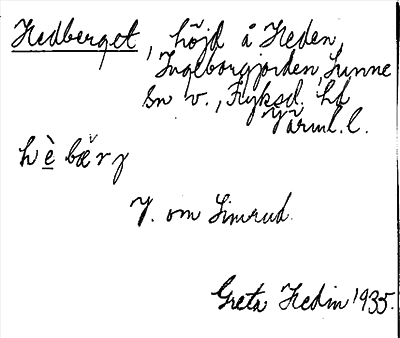 Hedberget, höjd å Heden,
Ingeborgjorden, Sunne
sn v., Fryksd. hd
Värml. l.
hè bærg
V. om Simrud.
Greta Hedin 1935.